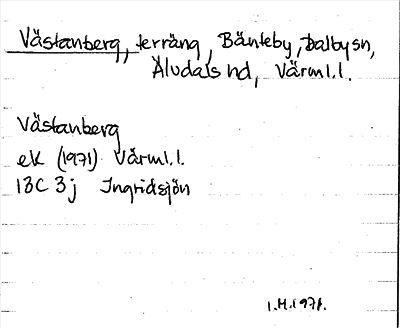 Västanberg, terräng, Bänteby, Dalby sn,
Älvdals hd, Värml.l.
Västanberg
ek (1971) Värml.l.
13C 3j Ingridsjön
1.H.1971.